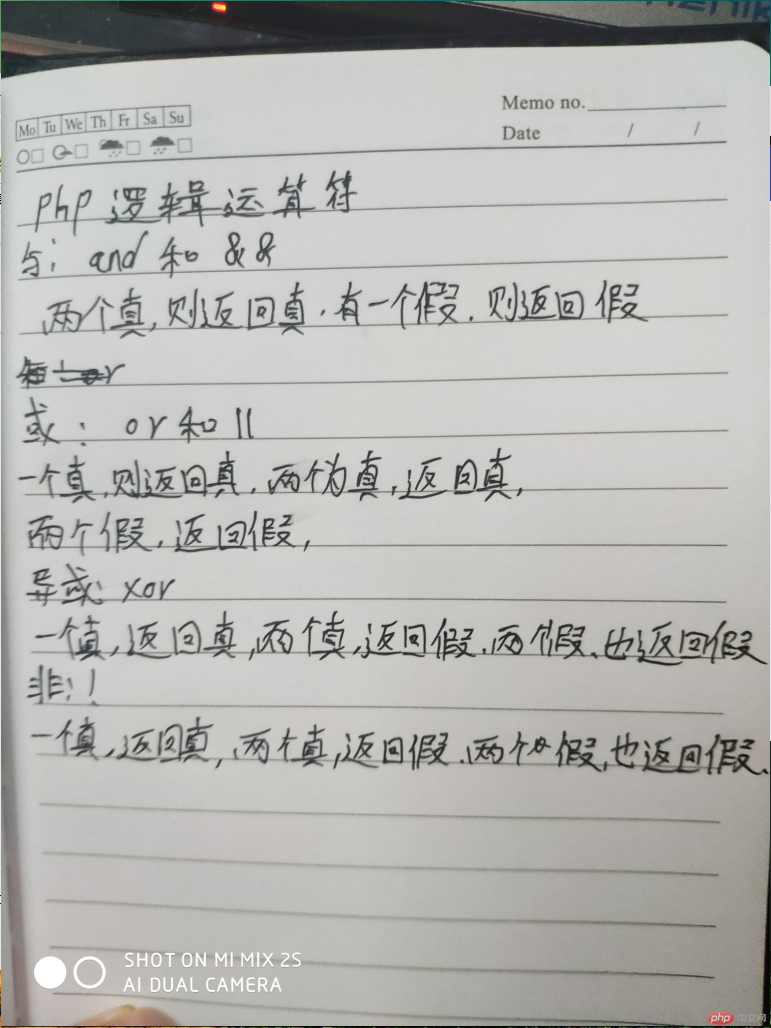 Memo no.
Mo Tu We Th Fr Sa Su
Date / /
php 逻辑运算符
与: and 和 &&
两个真,则返回真.有一个假.则返回假
或: or 和 ||
一个真,则返回真,两个为真,返回真,
两个假,返回假,
异或: xor
一个真,返回真,两个真,返回假.两个假、也返回假
非: !
一个真,返回真,两个真,返回假.两个假,也返回假、
SHOT ON MI MIX 2S
AI DUAL CAMERA
php 中文网